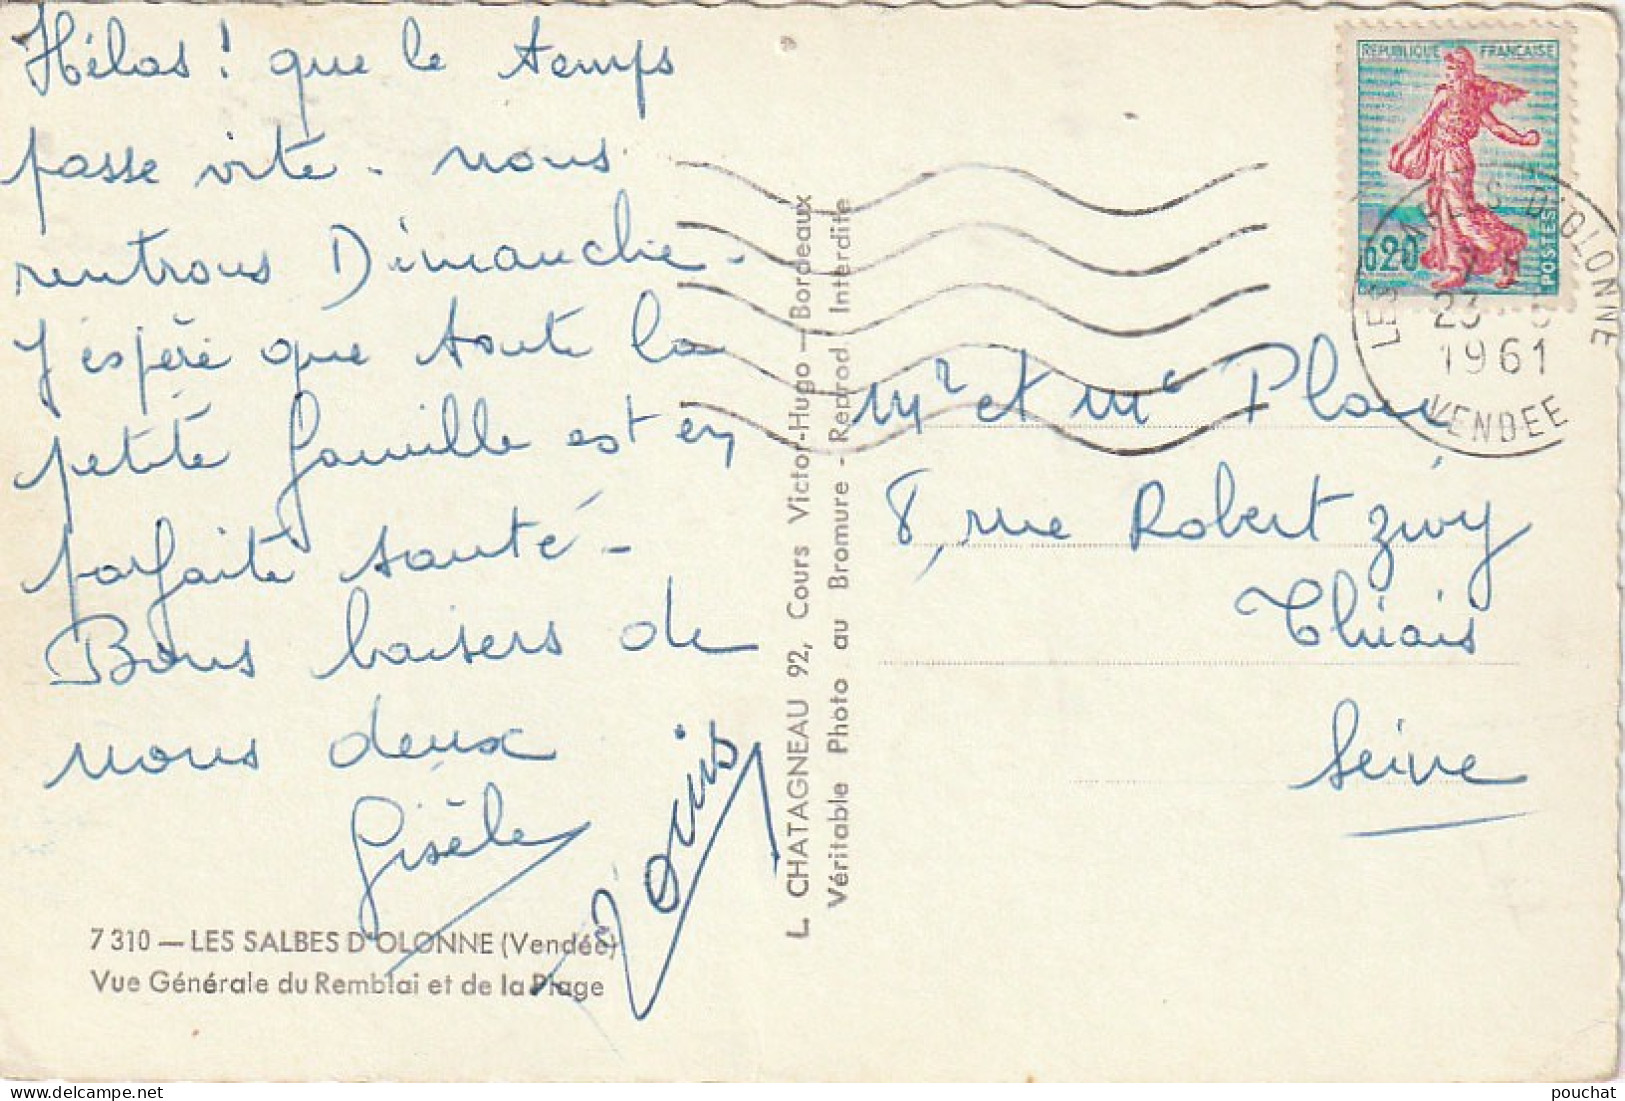 Hélas ! que le temps
passe vite - nous
rentrons Dimanche -
J'espère que toute la
petite famille est en
parfaite santé -
Bons baisers de
nous deux
Gisèle
Louis
7 310 — LES SALBES D'OLONNE (Vendée)
Vue Générale du Remblai et de la Plage
L. CHATAGNEAU 92, Cours Victor-Hugo — Bordeaux
Véritable Photo au Bromure - Reprod Interdite
REPUBLIQUE FRANÇAISE
0,20
POSTES
LES SABLES D'OLONNE
23
1961
VENDEE
Mr et Me
8, rue Robert Zivy
Thiais
Seine
pouchat